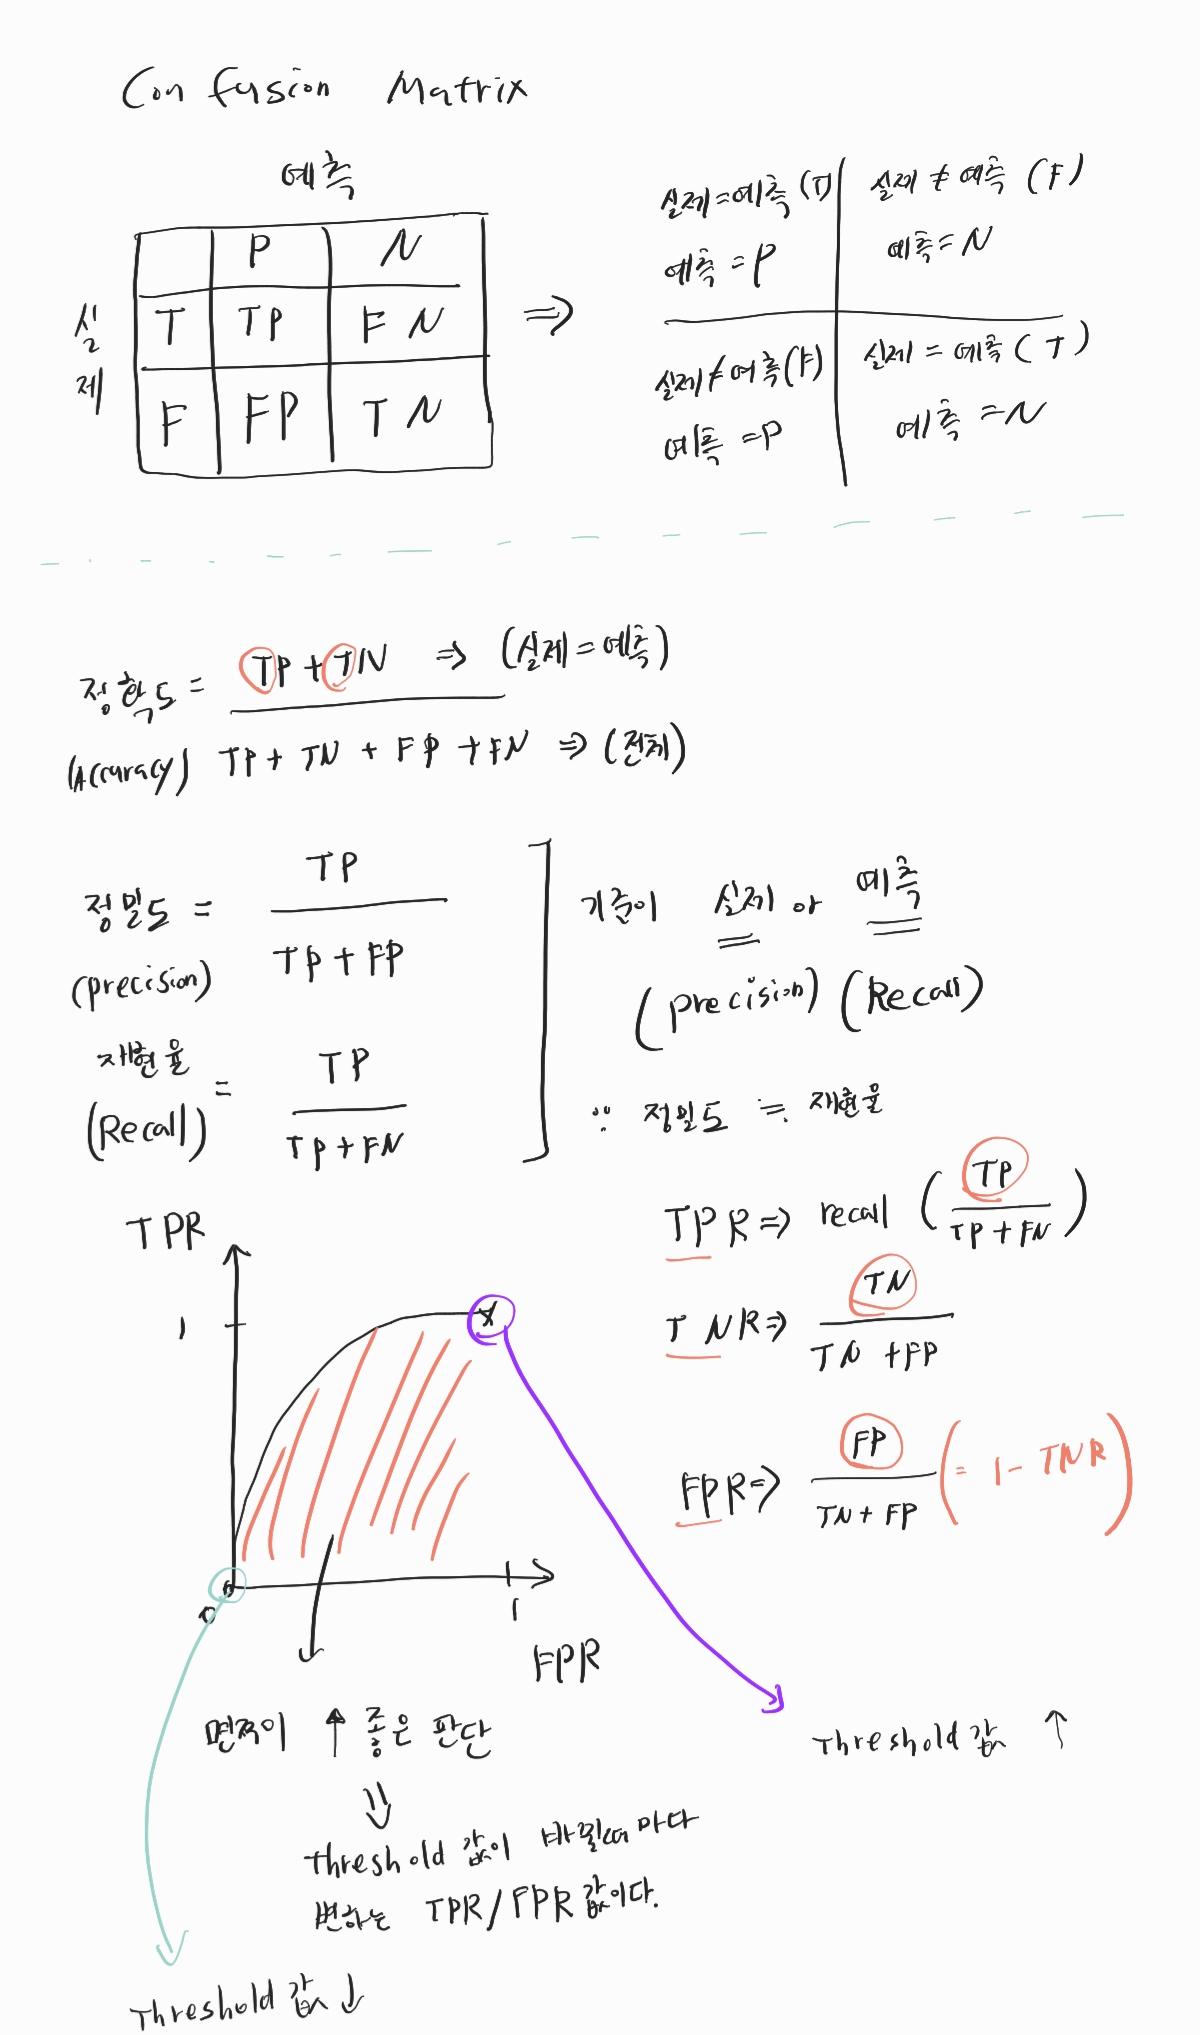 Confusion Matrix
예측
P N
실제
T TP FN
F FP TN
⇒
실제=예측 (T) 실제≠예측 (F)
예측=P 예측=N
실제≠예측(F) 실제=예측(T)
예측=P 예측=N
정확도 = TP+TN ⇒ (실제=예측)
(Accuracy) TP+TN+FP+FN ⇒ (전체)
정밀도 = TP
(precision) TP+FP
재현율 = TP
(Recall) TP+FN
기준이 실제 or 예측
(precision) (Recall)
∵ 정밀도 ≒ 재현율
TPR ⇒ recall (TP / TP+FN)
TNR ⇒ TN / TN+FP
FPR ⇒ FP / TN+FP (= 1-TNR)
TPR
1
0
1
FPR
면적이 ↑ 좋은 판단
⇓
Threshold 값이 바뀔때 마다
변하는 TPR/FPR 값이다.
Threshold 값 ↑
Threshold 값 ↓